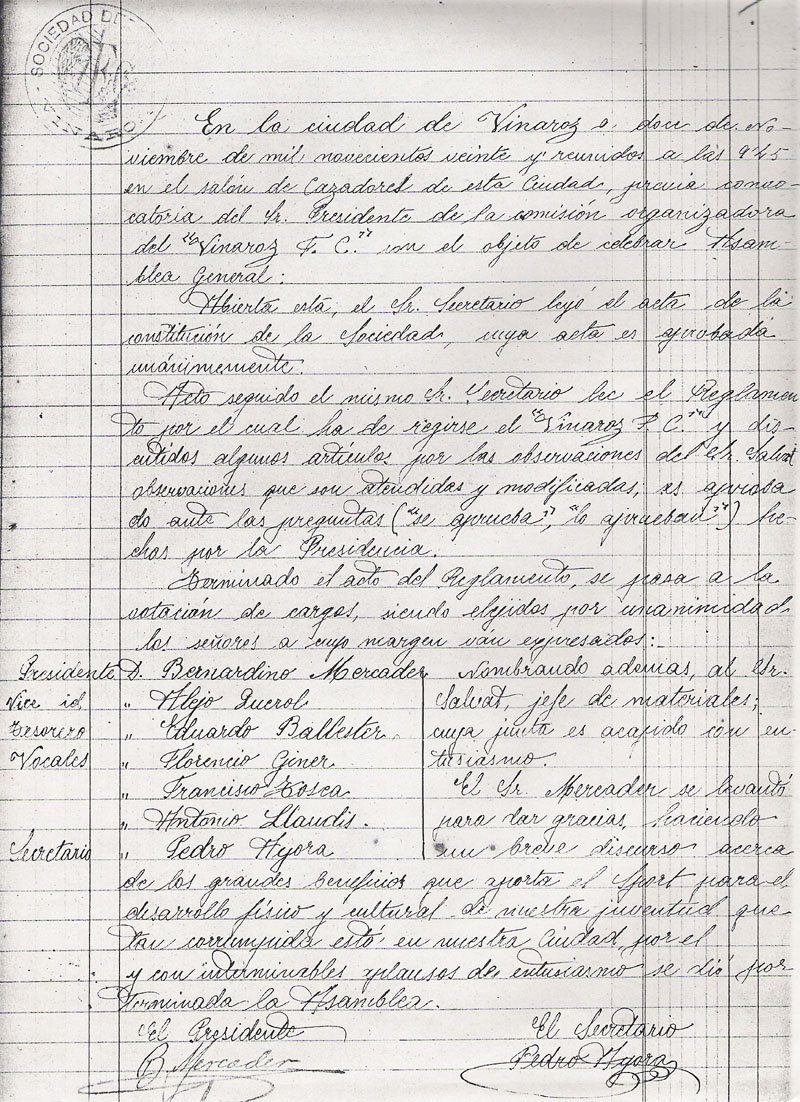 SOCIEDAD DE
VINARO
En la ciudad de Vinaroz a doce de No-
viembre de mil novecientos veinte y reunidos a las 9'45
en el salón de Cazadores de esta Ciudad, previa convo-
catoria del Sr. Presidente de la comisión organizadora
del "Vinaroz F. C." con el objeto de celebrar Asam-
blea General:
Abierta esta, el Sr. Secretario leyó el acta de la
constitución de la Sociedad, cuya acta es aprobada
unánimemente.
Acto seguido el mismo Sr. Secretario lee el Reglamen
to por el cual ha de regirse el "Vinaroz F. C." y dis-
cutidos algunos artículos por las observaciones del Sr. Salvat
observaciones que son atendidas y modificadas, es aproba
do ante las preguntas ("se aprueba", "lo aprueban") he-
chas por la Presidencia.
Terminado el acto del Reglamento, se pasa a la
votación de cargos, siendo elejidos por unanimidad
los señores a cuyo margen ván expresados:
Presidente D. Bernardino Mercader
Vice id. " Alejo Querol
Tesorero " Eduardo Ballester
Vocales " Florencio Giner
" Francisco Tosca
" Antonio Llaudis.
Secretario " Pedro Ayora
Nombrando ademas, al Sr.
Salvat, jefe de materiales;
cuya junta es acojido con en-
tusiasmo.
El Sr. Mercader se levantó
para dar gracias, haciendo
un breve discurso acerca
de los grandes beneficios que aporta el Sport para el
desarrollo físico y cultural de nuestra juventud que
tan corrumpida está en nuestra Ciudad, por el
y con interminables aplausos de entusiasmo se dió por
terminada la Asamblea.
El Presidente
B. Mercader
El Secretario
Pedro Ayora